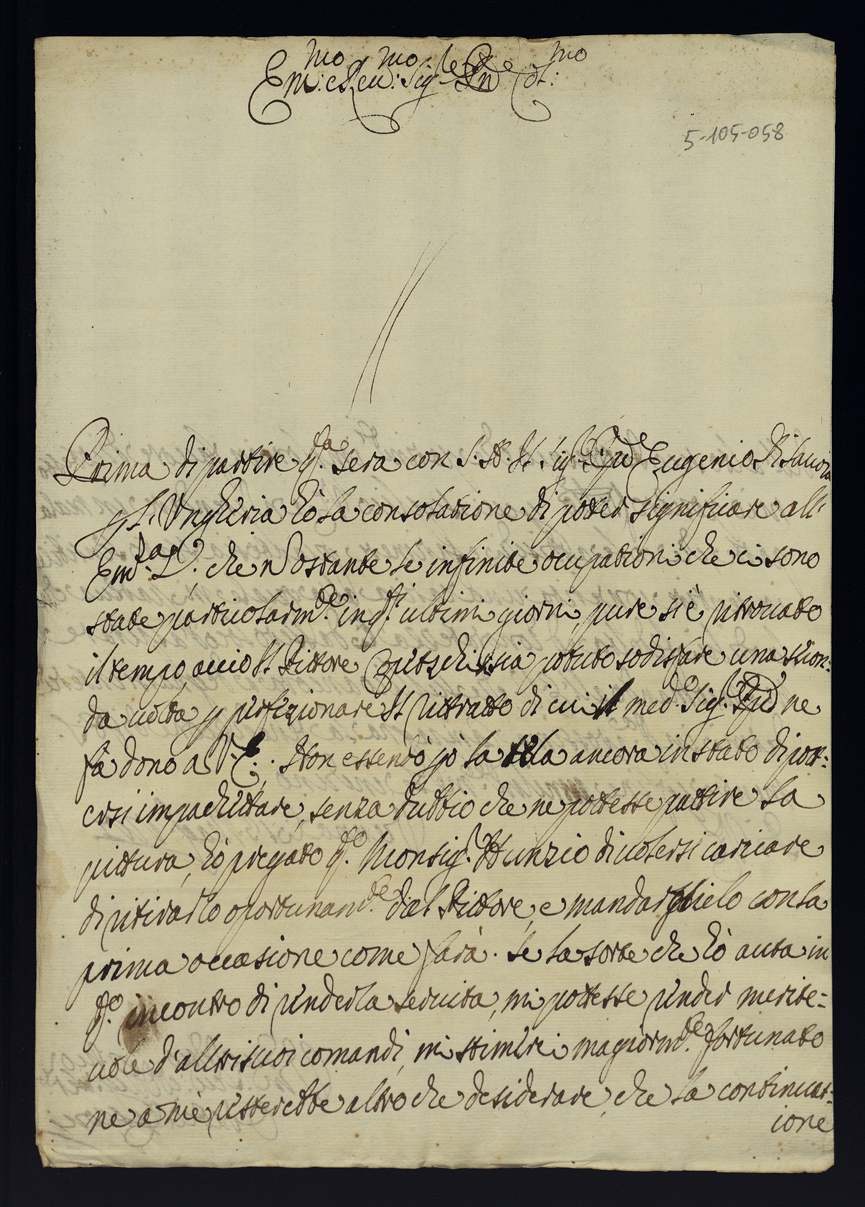 Em:mo e Reu:mo Sig:le Pne Col:mo
5-105-058
Prima di partire q.ta sera con S. A. Il Sig.r Pnpe Eugenio di Sauoia
p l'Ungheria hò la consolatione di poter significare all'
Em.za V. che nostante le infinite ocupationi che ci sono
state particolarm.te in q.ti ultimi giorni, pure si è ritrouato
il tempo, acciò Il Pittore sia potuto sodisfare una secon:
da uolta p perfezionare Il rittratto di cui il med.o Sig.r Pnpe ne
fà dono a V. E. Non essendo però la tela ancora in stato di poter:
cosi impachettare, senza dubbio che ne potesse pattire la
pittura, hò pregato q.to Monsig.r Nunzio di uolersi caricare
di ritirarlo oportunam.te dal Pittore, e mandarglielo con la
prima occasione come farà. Se la sorte che hò auta in
q.to incontro di renderla seruita, mi potesse render merite=
uole d'altri suoi comandi, mi stimerei magiorm.te fortunato
ne a mè resterebbe altro che desiderare, che la continuat=
ione